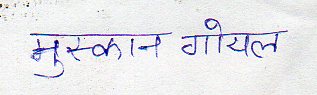 मुस्कान गोयल